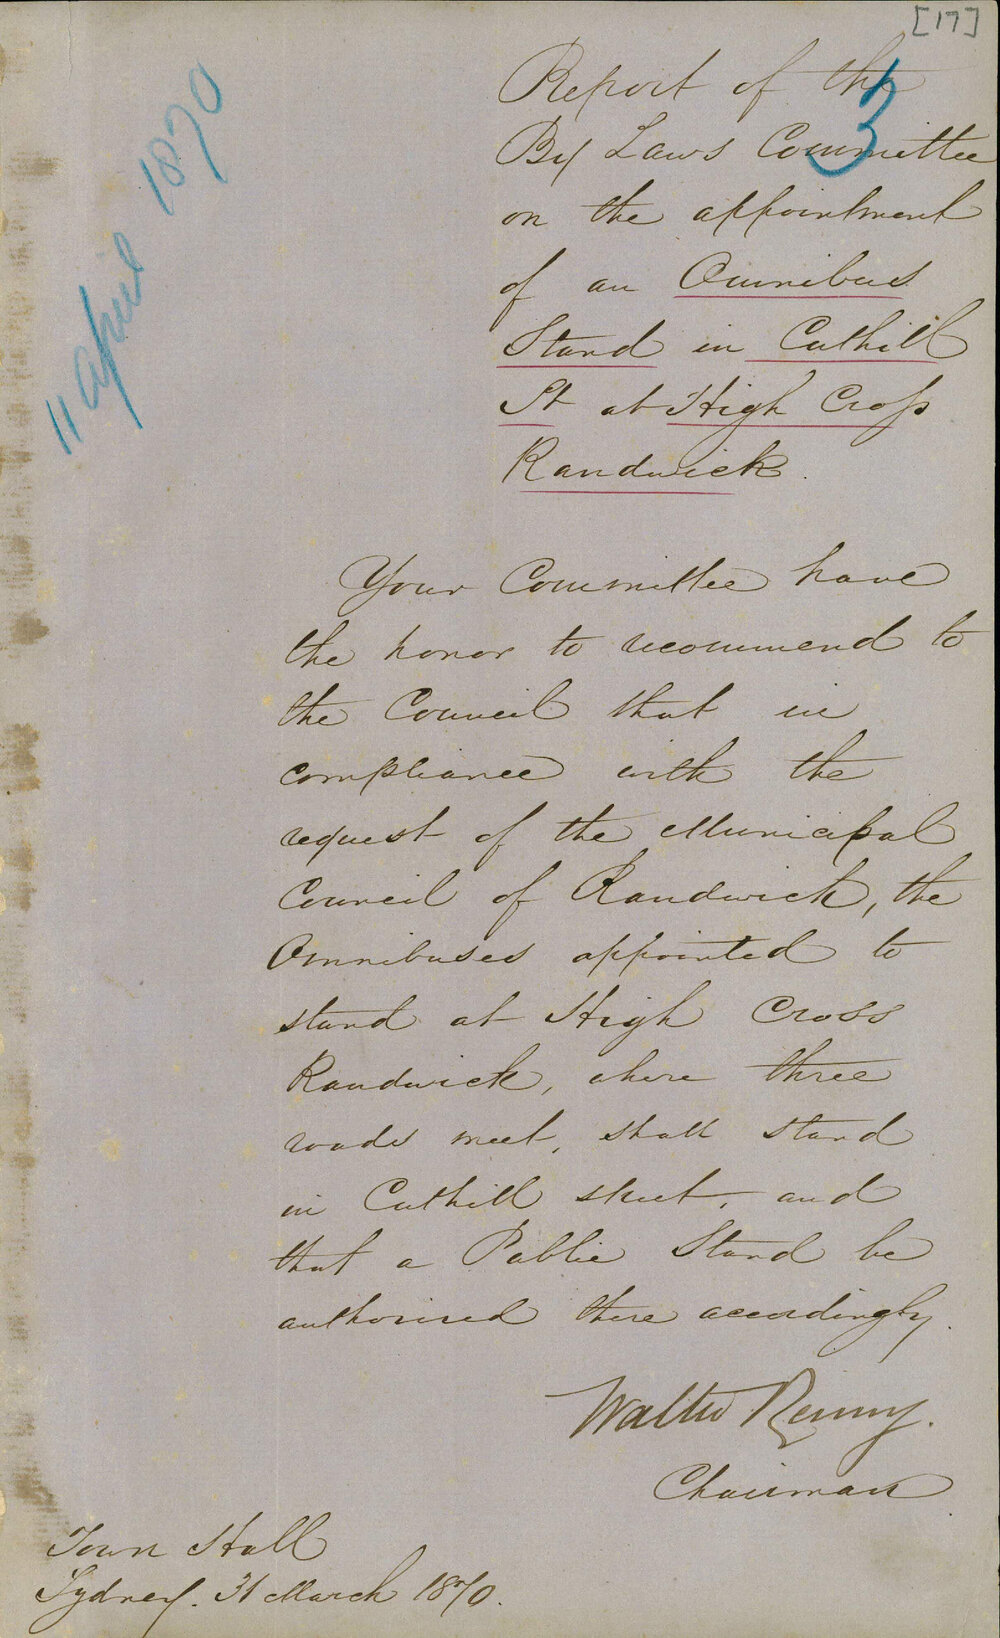 [17]
3
11 April 1870
Report of the
By Laws Committee
on the appointment
of an Omnibus
Stand in Cuthill
St at High Cross
Randwick.
Your Committee have
the honor to recommend to
the Council that in
compliance with the
request of the Municipal
Council of Randwick, the
Omnibuses appointed to
stand at High Cross
Randwick, where three
roads meet, shall stand
in Cuthill street, and
that a Public Stand be
authorised there accordingly.
Walter Renny.
Chairman
Town Hall
Sydney. 31 March 1870.